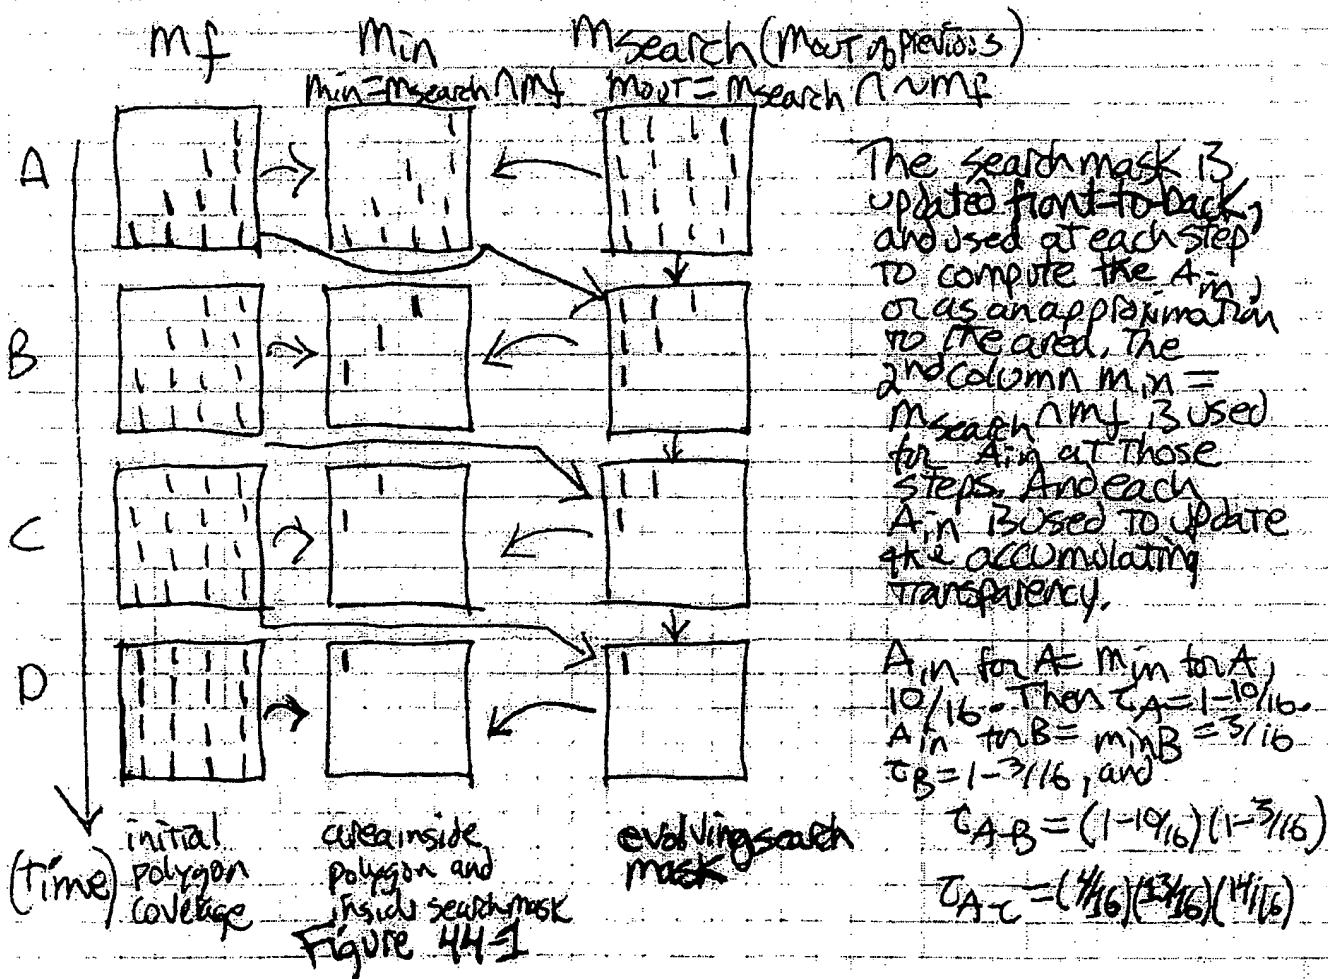 mf
min
msearch (mout of previous)
min = msearch ∩ mf
mout = msearch ∩ ~mf
A
B
C
D
(Time)
initial
polygon
coverage
area inside
polygon and
inside search mask
evolving search
mask
Figure 44-1
The search mask is
updated front-to-back,
and used at each step
to compute the Ain,
or as an approximation
to the area. The
2nd column min =
msearch ∩ mf is used
for Ain at those
steps. And each
Ain is used to update
the accumulating
transparency.
Ain for A = min for A,
10/16. Then τA = 1-10/16.
Ain for B = min B = 3/16
τB = 1-3/16, and
τA-B = (1-10/16)(1-3/16)
τA-C = (4/16)(13/16)(14/16)